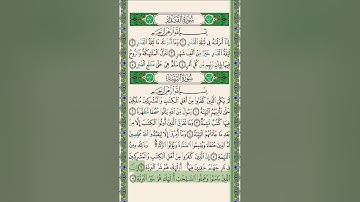 سُورَةُ الْقَدْرِ
بِسْمِ اللَّهِ الرَّحْمَٰنِ الرَّحِيمِ
إِنَّا أَنزَلْنَاهُ فِي لَيْلَةِ الْقَدْرِ ۝١ وَمَا أَدْرَاكَ مَا لَيْلَةُ الْقَدْرِ ۝٢ لَيْلَةُ
الْقَدْرِ خَيْرٌ مِّنْ أَلْفِ شَهْرٍ ۝٣ تَنَزَّلُ الْمَلَائِكَةُ وَالرُّوحُ
فِيهَا بِإِذْنِ رَبِّهِم مِّن كُلِّ أَمْرٍ ۝٤ سَلَامٌ هِيَ حَتَّىٰ مَطْلَعِ الْفَجْرِ ۝٥
سُورَةُ الْبَيِّنَةِ
بِسْمِ اللَّهِ الرَّحْمَٰنِ الرَّحِيمِ
لَمْ يَكُنِ الَّذِينَ كَفَرُوا مِنْ أَهْلِ الْكِتَابِ وَالْمُشْرِكِينَ مُنفَكِّينَ
حَتَّىٰ تَأْتِيَهُمُ الْبَيِّنَةُ ۝١ رَسُولٌ مِّنَ اللَّهِ يَتْلُو صُحُفًا مُّطَهَّرَةً ۝٢
فِيهَا كُتُبٌ قَيِّمَةٌ ۝٣ وَمَا تَفَرَّقَ الَّذِينَ أُوتُوا الْكِتَابَ إِلَّا مِن بَعْدِ
مَا جَاءَتْهُمُ الْبَيِّنَةُ ۝٤ وَمَا أُمِرُوا إِلَّا لِيَعْبُدُوا اللَّهَ مُخْلِصِينَ
لَهُ الدِّينَ حُنَفَاءَ وَيُقِيمُوا الصَّلَاةَ وَيُؤْتُوا الزَّكَاةَ وَذَٰلِكَ دِينُ
الْقَيِّمَةِ ۝٥ إِنَّ الَّذِينَ كَفَرُوا مِنْ أَهْلِ الْكِتَابِ وَالْمُشْرِكِينَ
فِي نَارِ جَهَنَّمَ خَالِدِينَ فِيهَا أُولَٰئِكَ هُمْ شَرُّ الْبَرِيَّةِ ۝٦ إِنَّ
الَّذِينَ آمَنُوا وَعَمِلُوا الصَّالِحَاتِ أُولَٰئِكَ هُمْ خَيْرُ الْبَرِيَّةِ ۝٧